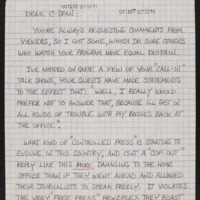 DEAR C-SPAN:
YOU'RE ALWAYS REQUESTING COMMENTS FROM
VIEWERS, SO I GOT SOME, WHICH I'M SURE OTHERS
WHO WATCH YOUR PROGRAM HAVE EQUAL DISDAIN.
I'VE NOTICED ON QUITE A FEW OF YOUR "CALL-IN"
TALK SHOWS, YOUR GUESTS HAVE MADE STATEMENTS
TO THE EFFECT THAT: "WELL, I REALLY WOULD
PREFER NOT TO ANSWER THAT, BECAUSE I'LL GET IN
ALL KINDS OF TROUBLE WITH MY BOSSES BACK AT
THE OFFICE."
WHAT KIND OF CONTROLLED PRESS IS STARTING TO
EVOLVE IN THIS COUNTRY, AND ISN'T A "COP-OUT"
REPLY LIKE THIS MORE DAMAGING TO THE HOME
OFFICE THAN IF THEY WENT AHEAD AND ALLOWED
THEIR JOURNALISTS TO SPEAK FREELY. IT VIOLATES
THE VERY "FREE PRESS" PRINCIPLES THEY BOAST